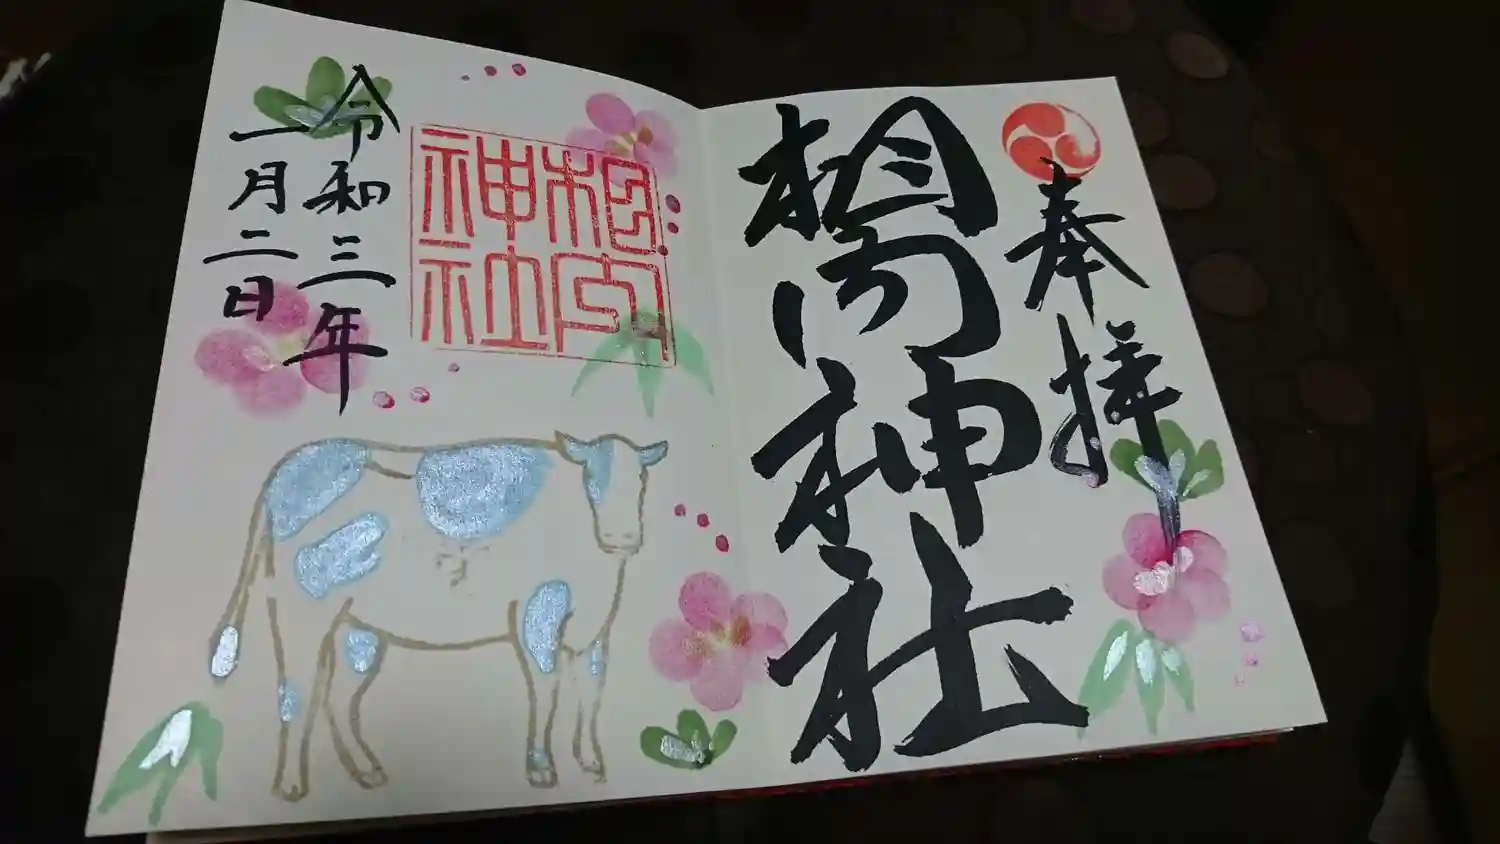 奉拝
神社
神社
令和三年
一月二日